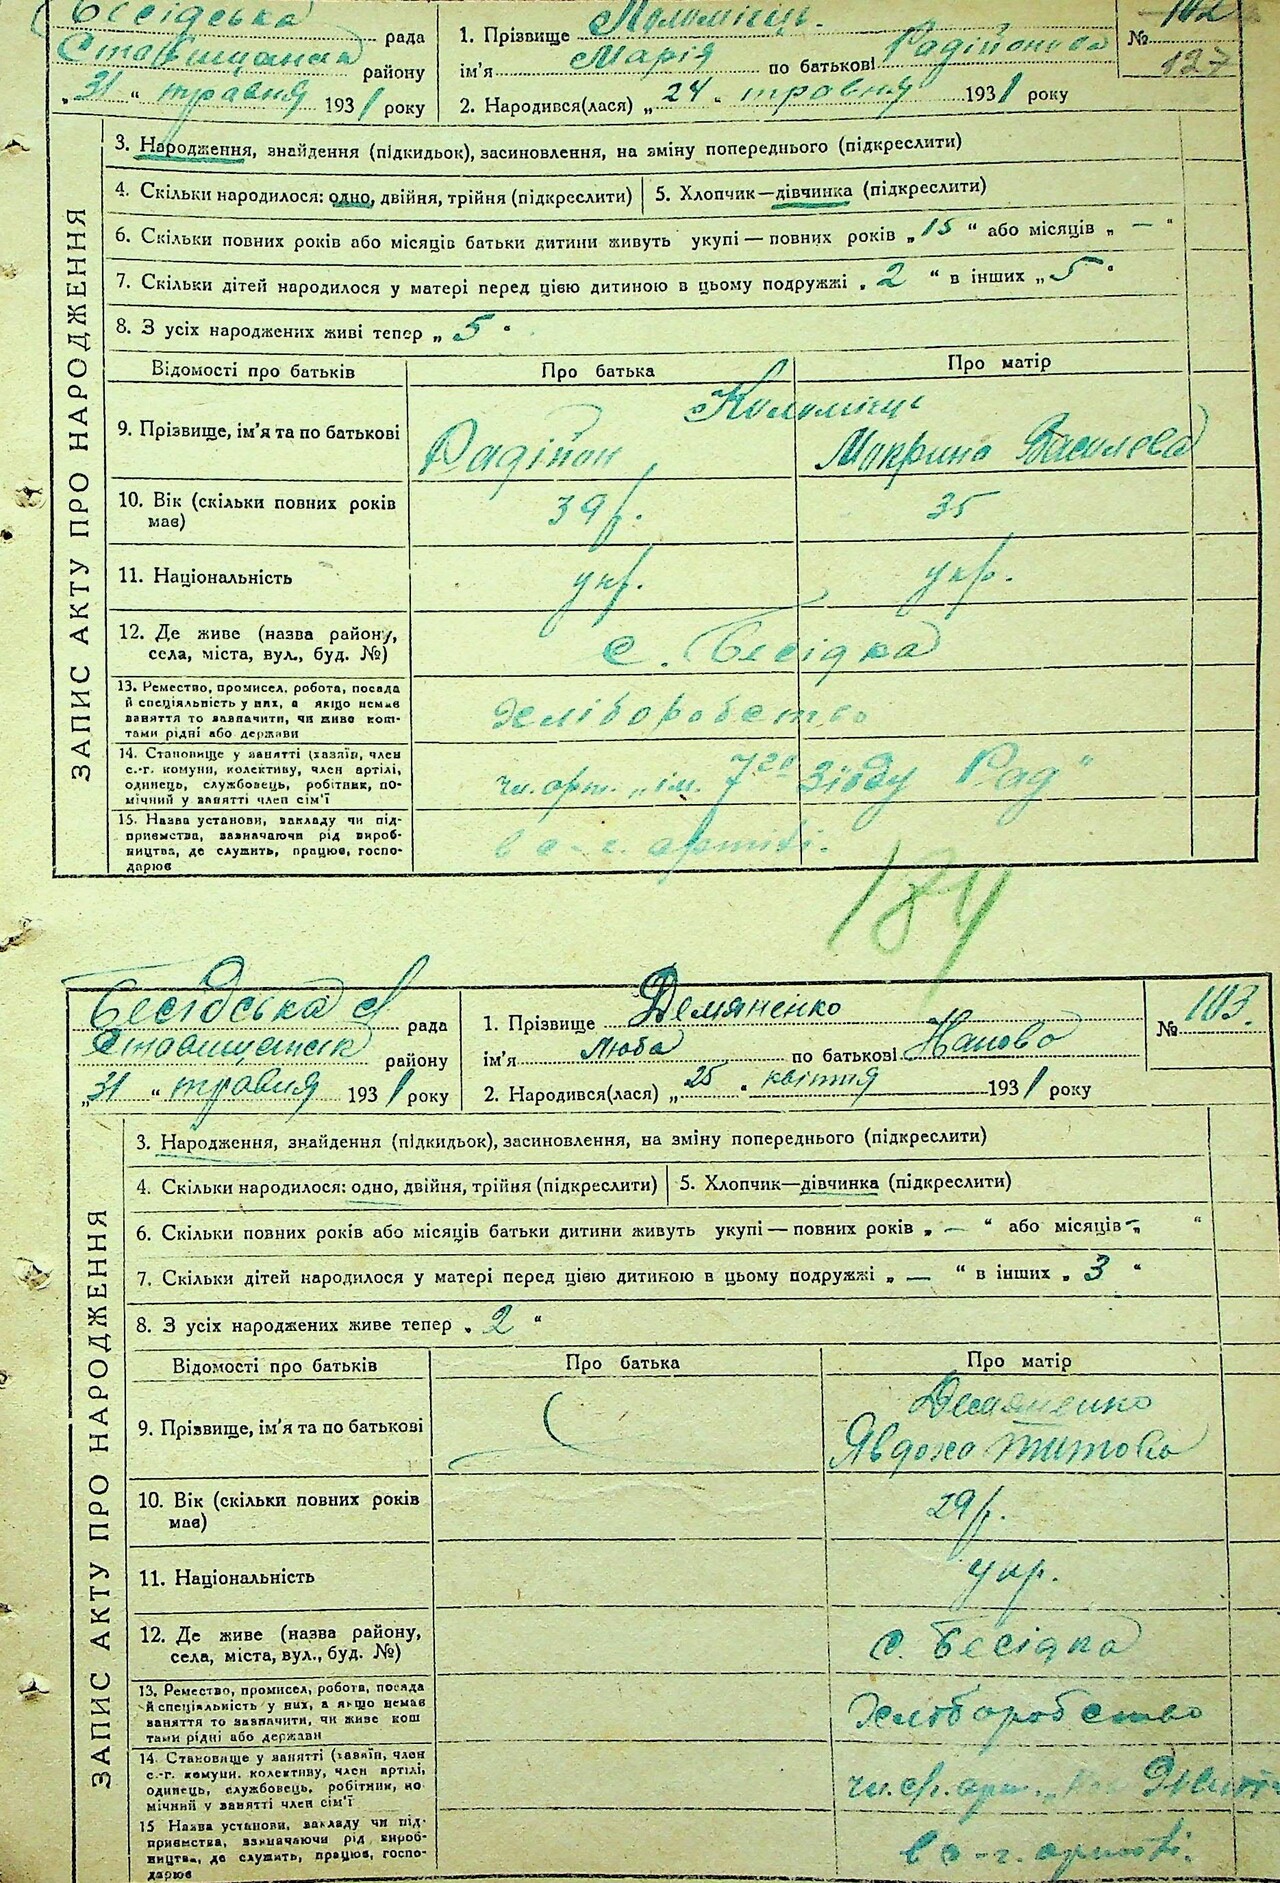 Бесідська рада
Ставищанськ району
„31“ травня 1931 року
1. Прізвище Коломієць
ім'я Марія по батькові Радійонова
2. Народився(лася) „24“ травня 1931 року
№ 102
127
ЗАПИС АКТУ ПРО НАРОДЖЕННЯ
3. Народження, знайдення (підкидьок), засиновлення, на зміну попереднього (підкреслити)
4. Скільки народилося: одно, двійня, трійня (підкреслити) 5. Хлопчик—дівчинка (підкреслити)
6. Скільки повних років або місяців батьки дитини живуть укупі — повних років „15“ або місяців „—“
7. Скільки дітей народилося у матері перед цією дитиною в цьому подружжі „2“ в інших „5“
8. З усіх народжених живі тепер „5“
Відомості про батьків Про батька Про матір
9. Прізвище, ім'я та по батькові
Коломієць
Радійон Мокрина Василева
10. Вік (скільки повних років має) 39 р. 35
11. Національність укр. укр.
12. Де живе (назва району, села, міста, вул., буд. №) с. Бесідка
13. Ремество, промисел, робота, посада
й спеціяльність у них, а якщо немає
заняття то зазначити, чи живе кош-
тами рідні або держави
хліборобство
14. Становище у занятті (хазяїн, член
с.-г. комуни, колективу, член артілі,
одинець, службовець, робітник, по-
мічний у занятті член сім'ї
чл. арт. „ім. 7го Зїзду Рад“
15. Назва установи, закладу чи під-
приємства, зазначаючи рід вироб-
ництва, де служить, працює, госпо-
дарює
в с-г. артілі.
184
Бесідська с/ рада
Ставищанськ району
„31“ травня 1931 року
1. Прізвище Демяненко
ім'я Люба по батькові
2. Народився(лася) „25“ квітня 1931 року
№ 103.
ЗАПИС АКТУ ПРО НАРОДЖЕННЯ
3. Народження, знайдення (підкидьок), засиновлення, на зміну попереднього (підкреслити)
4. Скільки народилося: одно, двійня, трійня (підкреслити) 5. Хлопчик—дівчинка (підкреслити)
6. Скільки повних років або місяців батьки дитини живуть укупі — повних років „—“ або місяців „—“
7. Скільки дітей народилося у матері перед цією дитиною в цьому подружжі „—“ в інших „3“
8. З усіх народжених живе тепер „2“
Відомості про батьків Про батька Про матір
9. Прізвище, ім'я та по батькові
Демяненко
Явдоха Титова
10. Вік (скільки повних років має) 29 р.
11. Національність укр.
12. Де живе (назва району, села, міста, вул., буд. №) с. Бесідка
13. Ремество, промисел, робота, посада
й спеціяльність у них, а якщо немає
заняття то зазначити, чи живе кош
тами рідні або держави
хліборобство
14. Становище у занятті (хазяїн, член
с.-г. комуни, колективу, член артілі,
одинець, службовець, робітник, по
мічний у занятті член сім'ї
арт.
15 Назва установи, закладу чи під-
приємства, зазначаючи рід вироб-
ництва, де служить, працює, госпо-
дарює
в с-г. артілі.